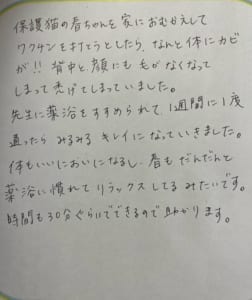 保護猫の春ちゃんを家におむかえして
ワクチンを打とうとしたら、なんと体にカビ
が!! 背中と顔にも毛がなくなって
しまって禿げてしまっていました。
先生に薬浴をすすめられて、1週間に1度
通ったらみるみるキレイになっていきました。
体もいいにおいになるし、春もだんだんと
薬浴に慣れてリラックスしてるみたいです。
時間も30分ぐらいでできるので助かります。